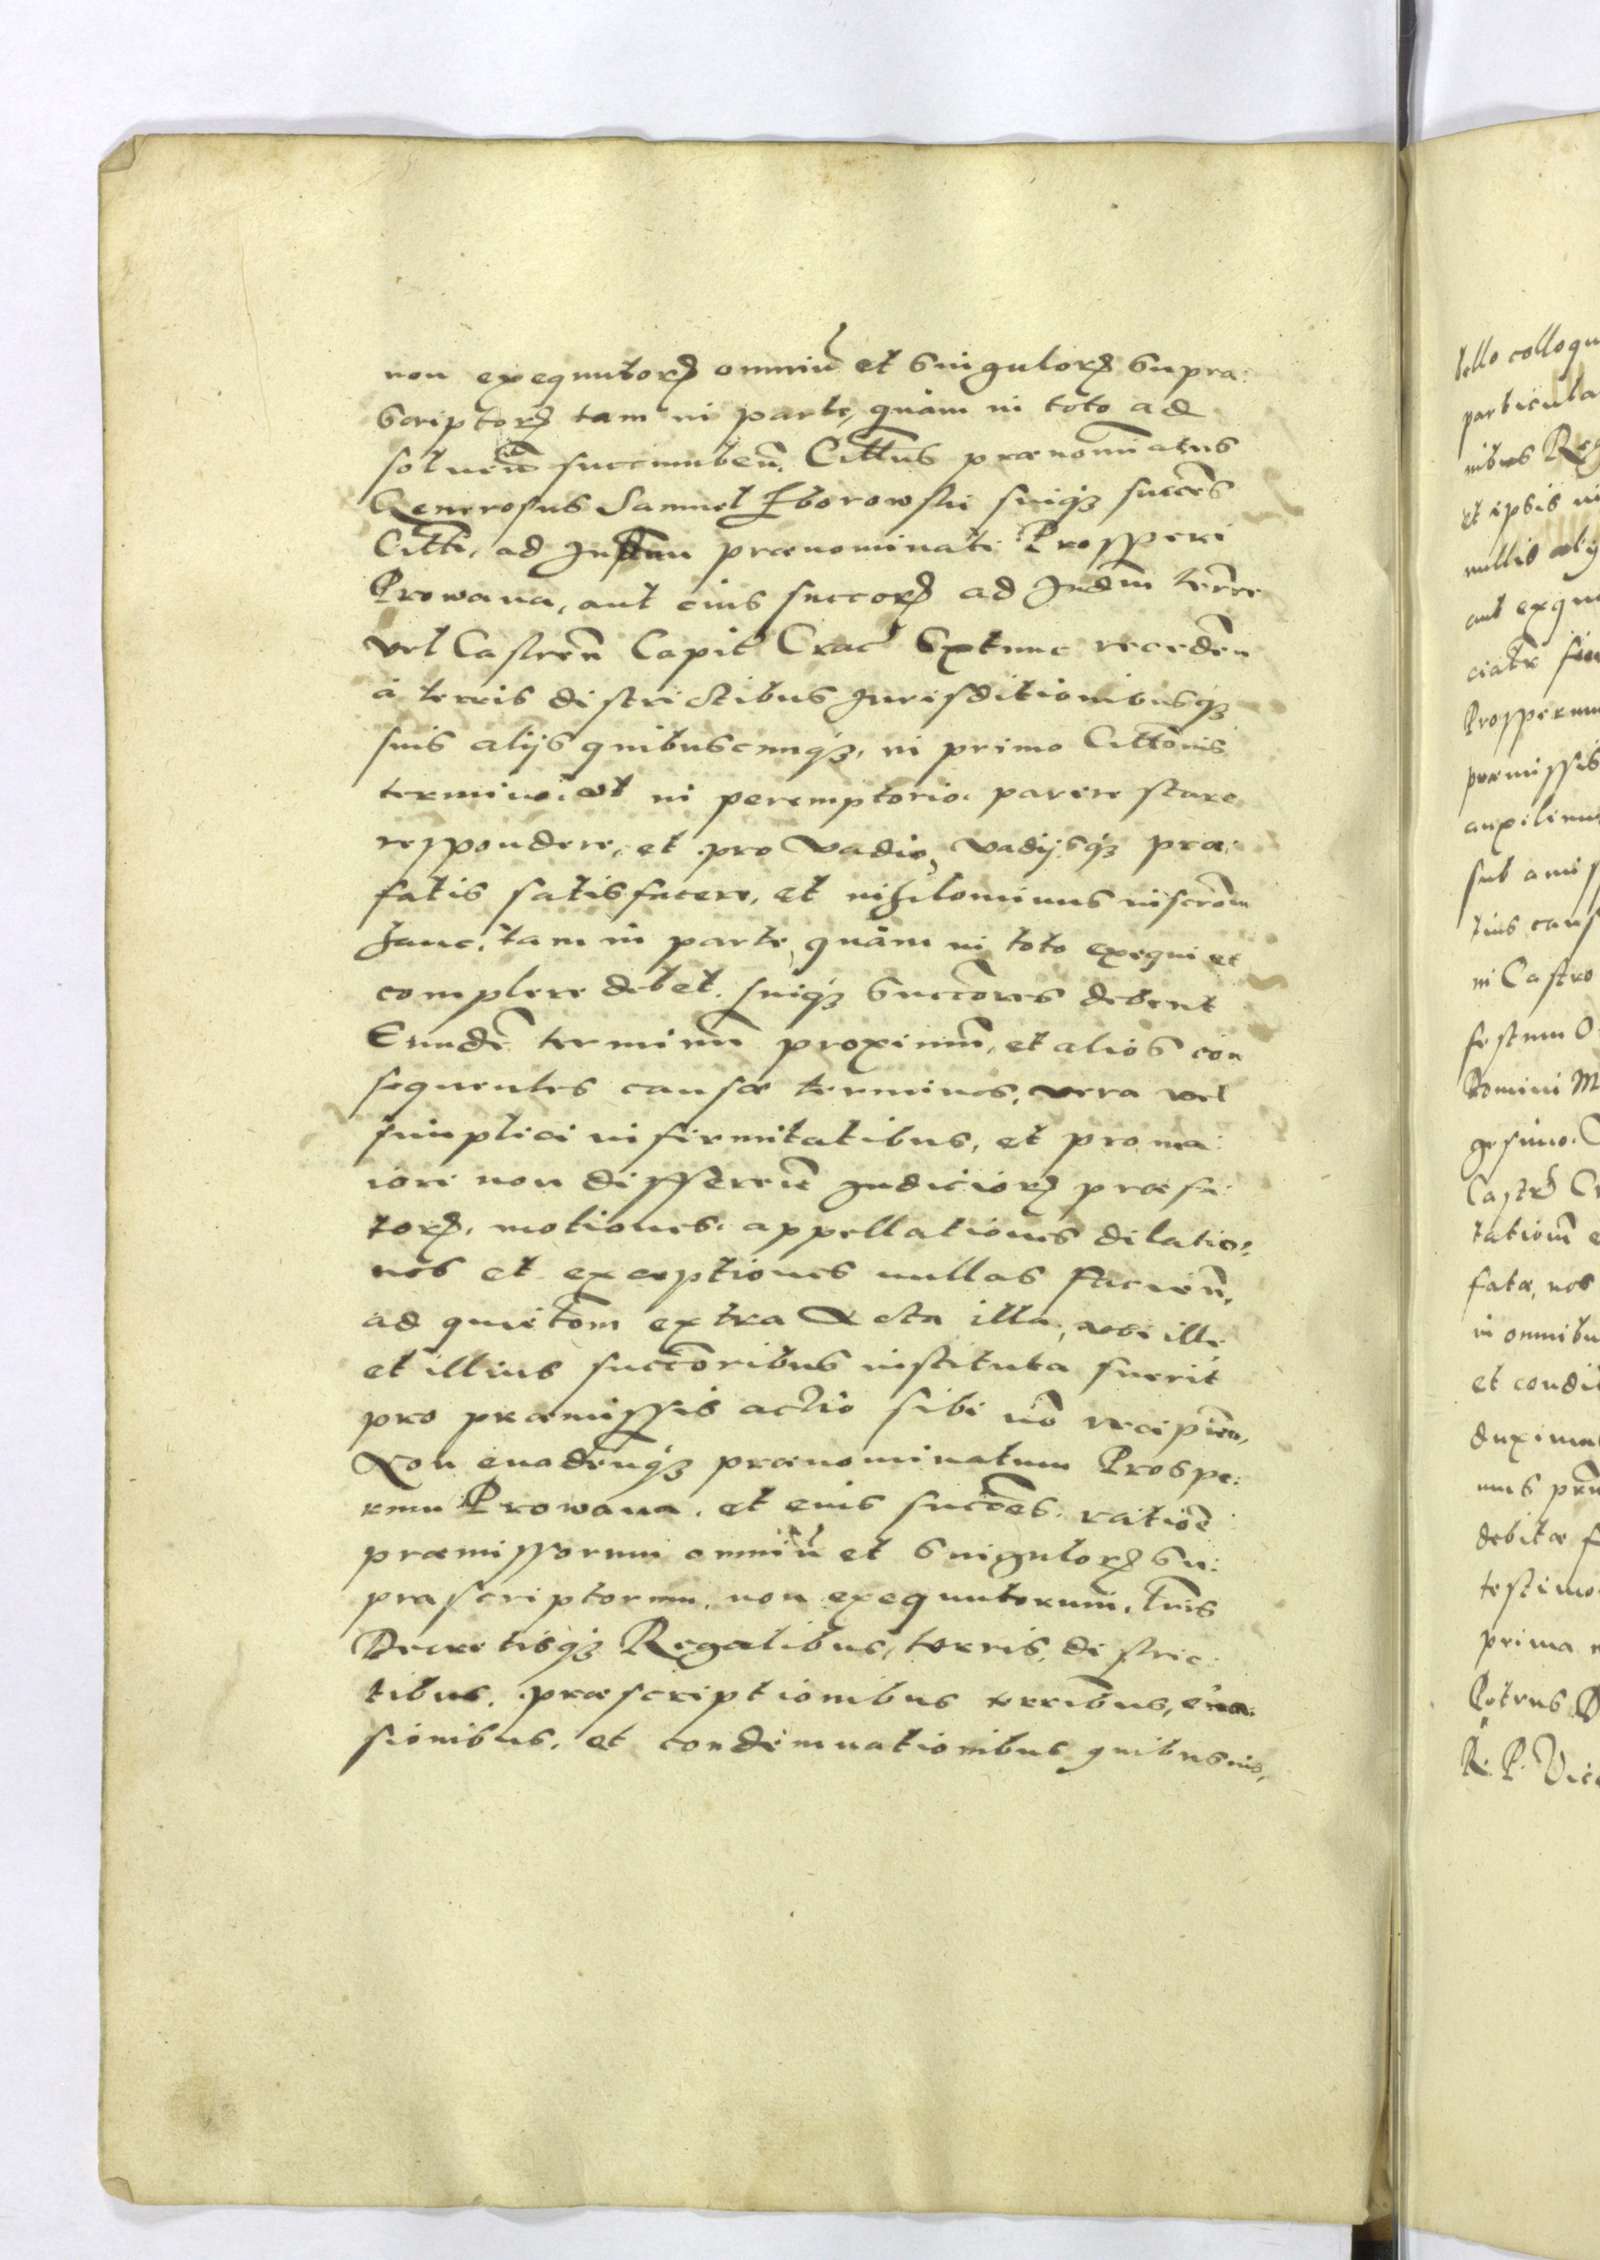 non exequutorꝝ omniū et Singulorꝝ Supra:
Scriptorꝝ tam in parte, quàm in toto ad
solueñ succumbeñ. Citt̃us prænominatus
Generosus Samuel Zborowski suiqꝫ succẽs
Citti, ad Iñstm prænominati Prosperi
Prowana, aut eius succorꝝ ad Iudm̃ terrẽ
vel Castreñ Capit Crac̃ Extunc recedeñ
à terris districtibus Iurisditionibusqꝫ
suis alijs quibuscunqꝫ, in primo Citt̃onis
termino, vt in peremptorio. parere stare
respondere, et pro vadio, vadijsqꝫ præ:
fatis satisfacere, et nihilominus inscrõm
hanc, tam in parte, quàm in toto exequi et
complere debet. suiqꝫ Succõres debent
Eundẽ terminũ proximũ, et alios con
sequentes causæ terminos, vera vel
simplici infirmitatibus, et pro ma:
iori non differeñ Iudiciorꝝ præfa:
torꝝ, motiones, appellationes dilatio:
nes et exceptiones nullas facieñ,
ad quietõm extra Acta illa, vbi illi
et illius succõribus instituta fuerit
pro præmissis actio sibi nõ recipieñ,
Non euadeñqꝫ prænominatum Prospe:
rum Prowana. et eius succẽs. ratiõe
præmissorum omniũ et Singulorꝝ Su:
prascriptorum, non exequutorum, Lr̃is
Decretisqꝫ Regalibus, terris, distric:
tibus, præscriptionibus terribus, eua:
sionibus, et condemnationibus quibusuis,
tello colloqu
particula
nibus Reg
et ipsis in
nullis alij
aut exqui
Prosperum
præmissis
auxilium
sub amiss
tius caus
in Castro
festum
Domini M
gesimo.
Castrꝝ Cr
tationm̃ e
fatæ, nos
in omnibu
et condit
duximu
debitæ f
testimo
prima
Petrus D
R. P. Vice